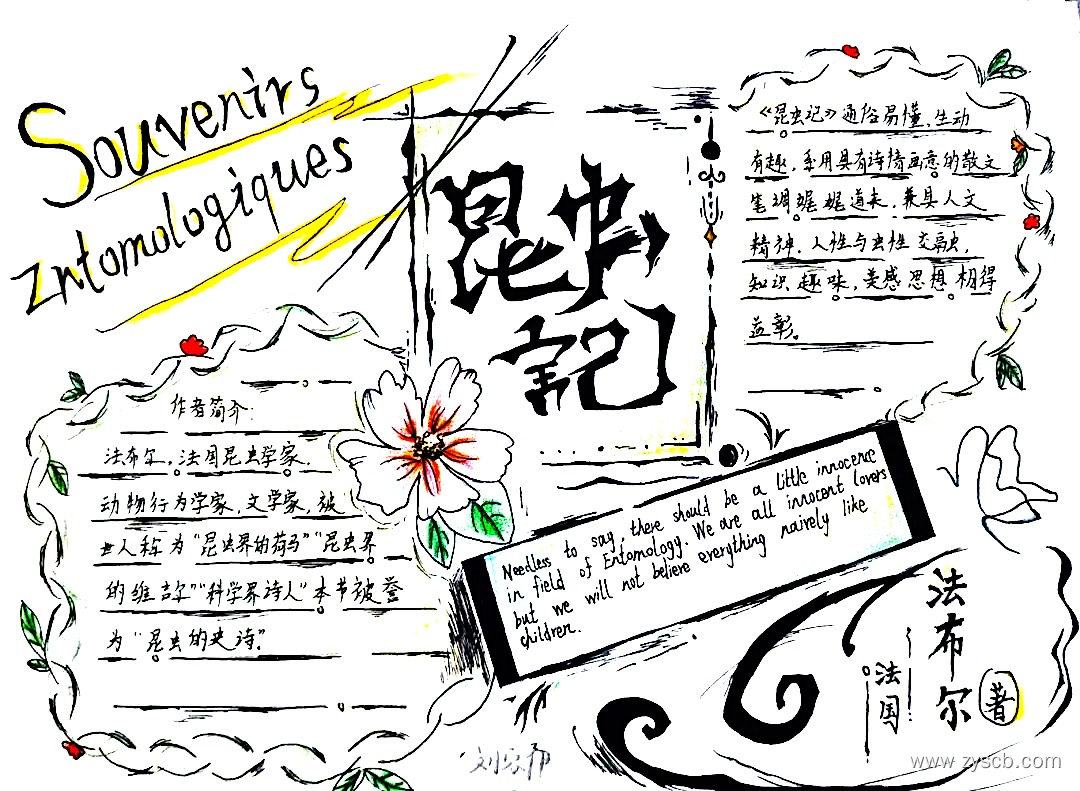 Souvenirs
Zntomologiques
昆虫
记
《昆虫记》通俗易懂、生动
有趣,采用具有诗情画意的散文
笔调娓娓道来,兼具人文
精神,人性与虫性交融,
知识、趣味、美感思想相得
益彰。
作者简介:
法布尔,法国昆虫学家,
动物行为学家,文学家,被
世人称为“昆虫界的荷马”“昆虫界
的维吉尔”“科学界诗人”本书被誉
为“昆虫的史诗”
Needless to say, there should be a little innocence
in field of Entomology. We are all innocent lovers
but we will not believe everything naively like
children.
法布尔 著
法国
www.zyscb.com